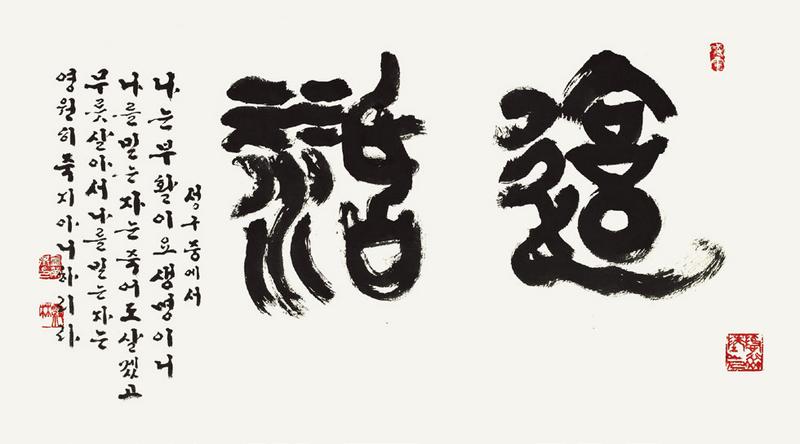 復活
성구중에서
나는부활이요생명이니
나를믿는자는죽어도살겠고
무릇살아서나를믿는자는
영원히죽지아니하리라